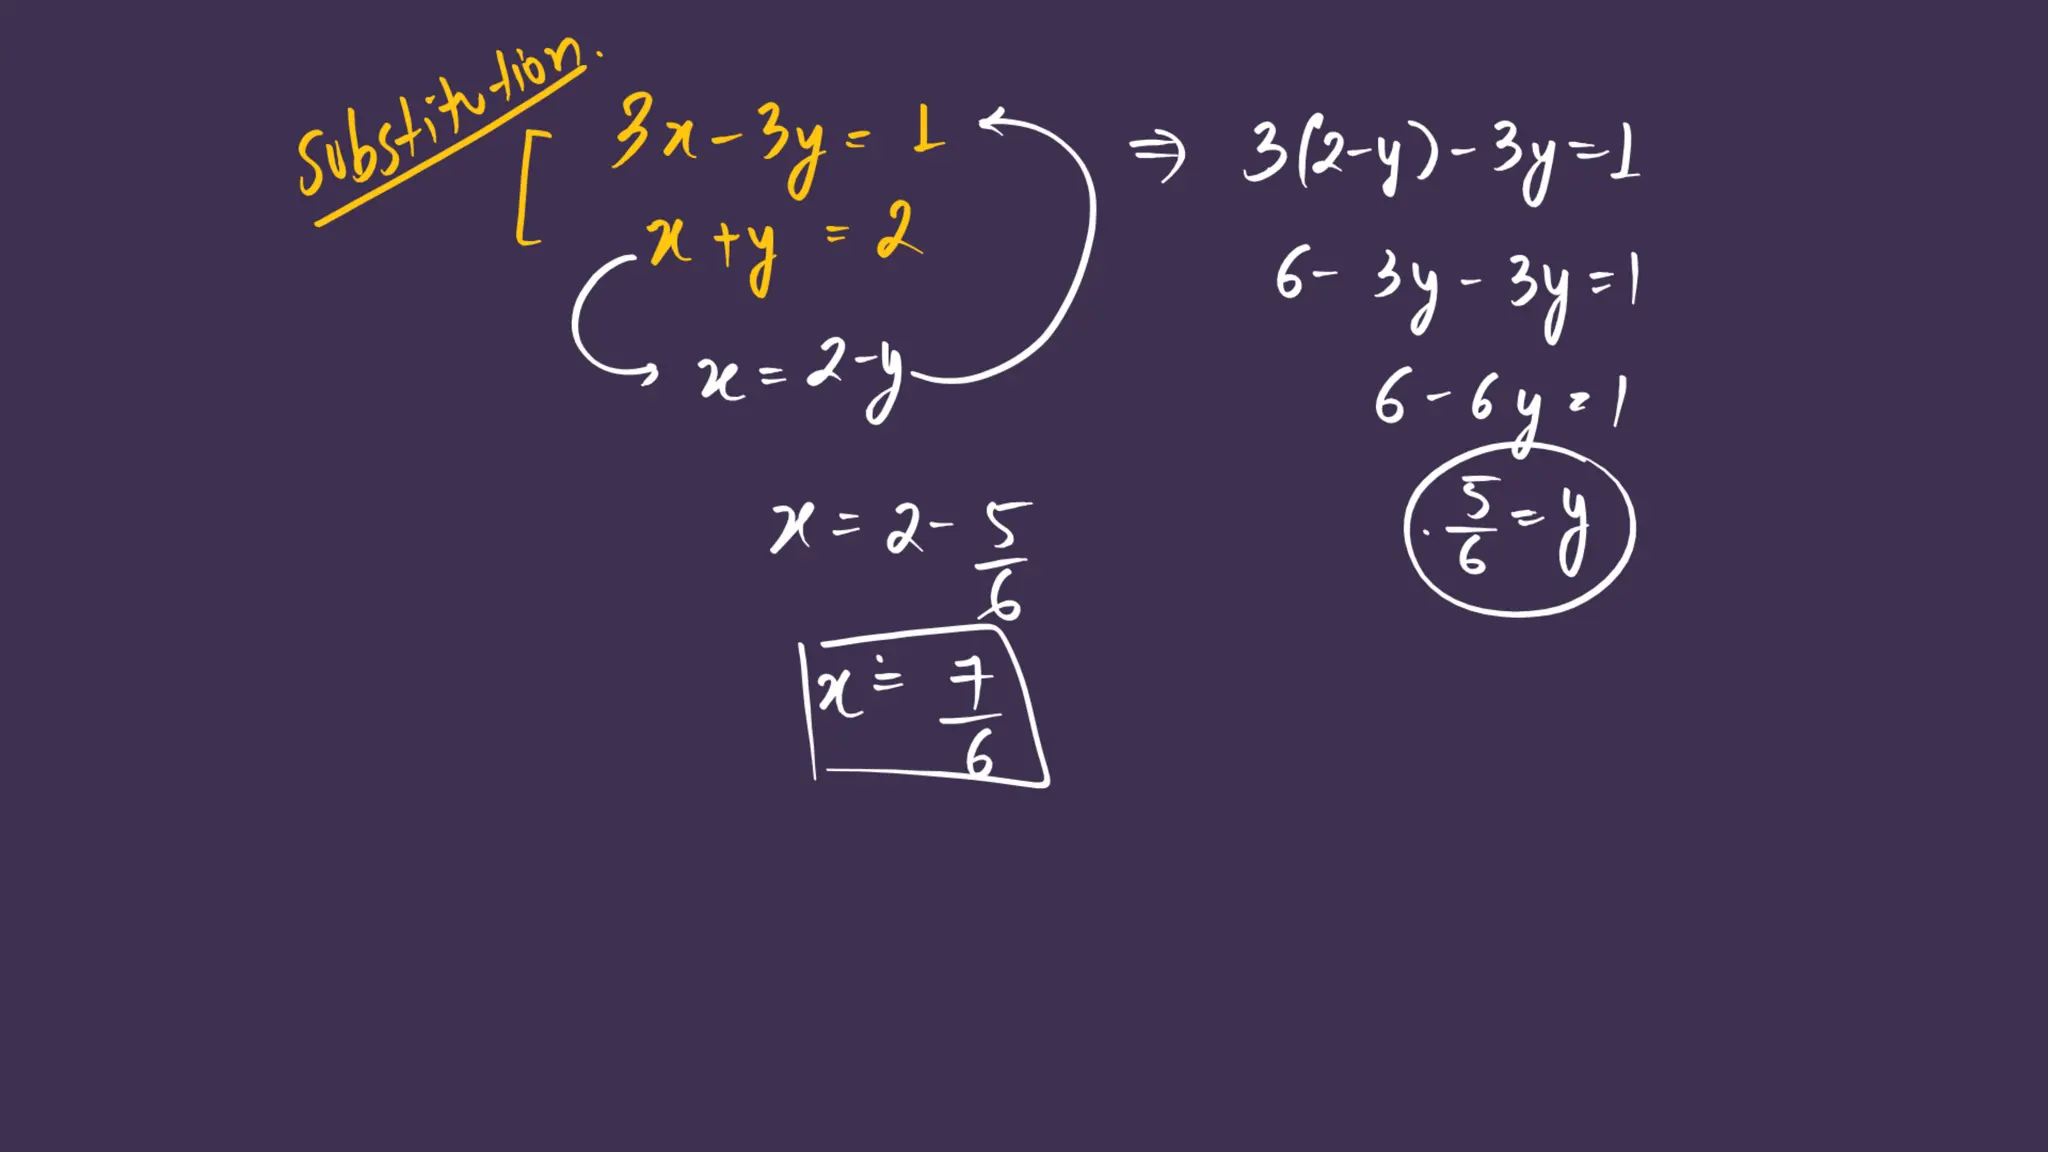 Substitution.
3x - 3y = 1
x + y = 2
x = 2 - y
⇒ 3(2-y) - 3y = 1
6 - 3y - 3y = 1
6 - 6y = 1
5/6 = y
x = 2 - 5/6
x = 7/6